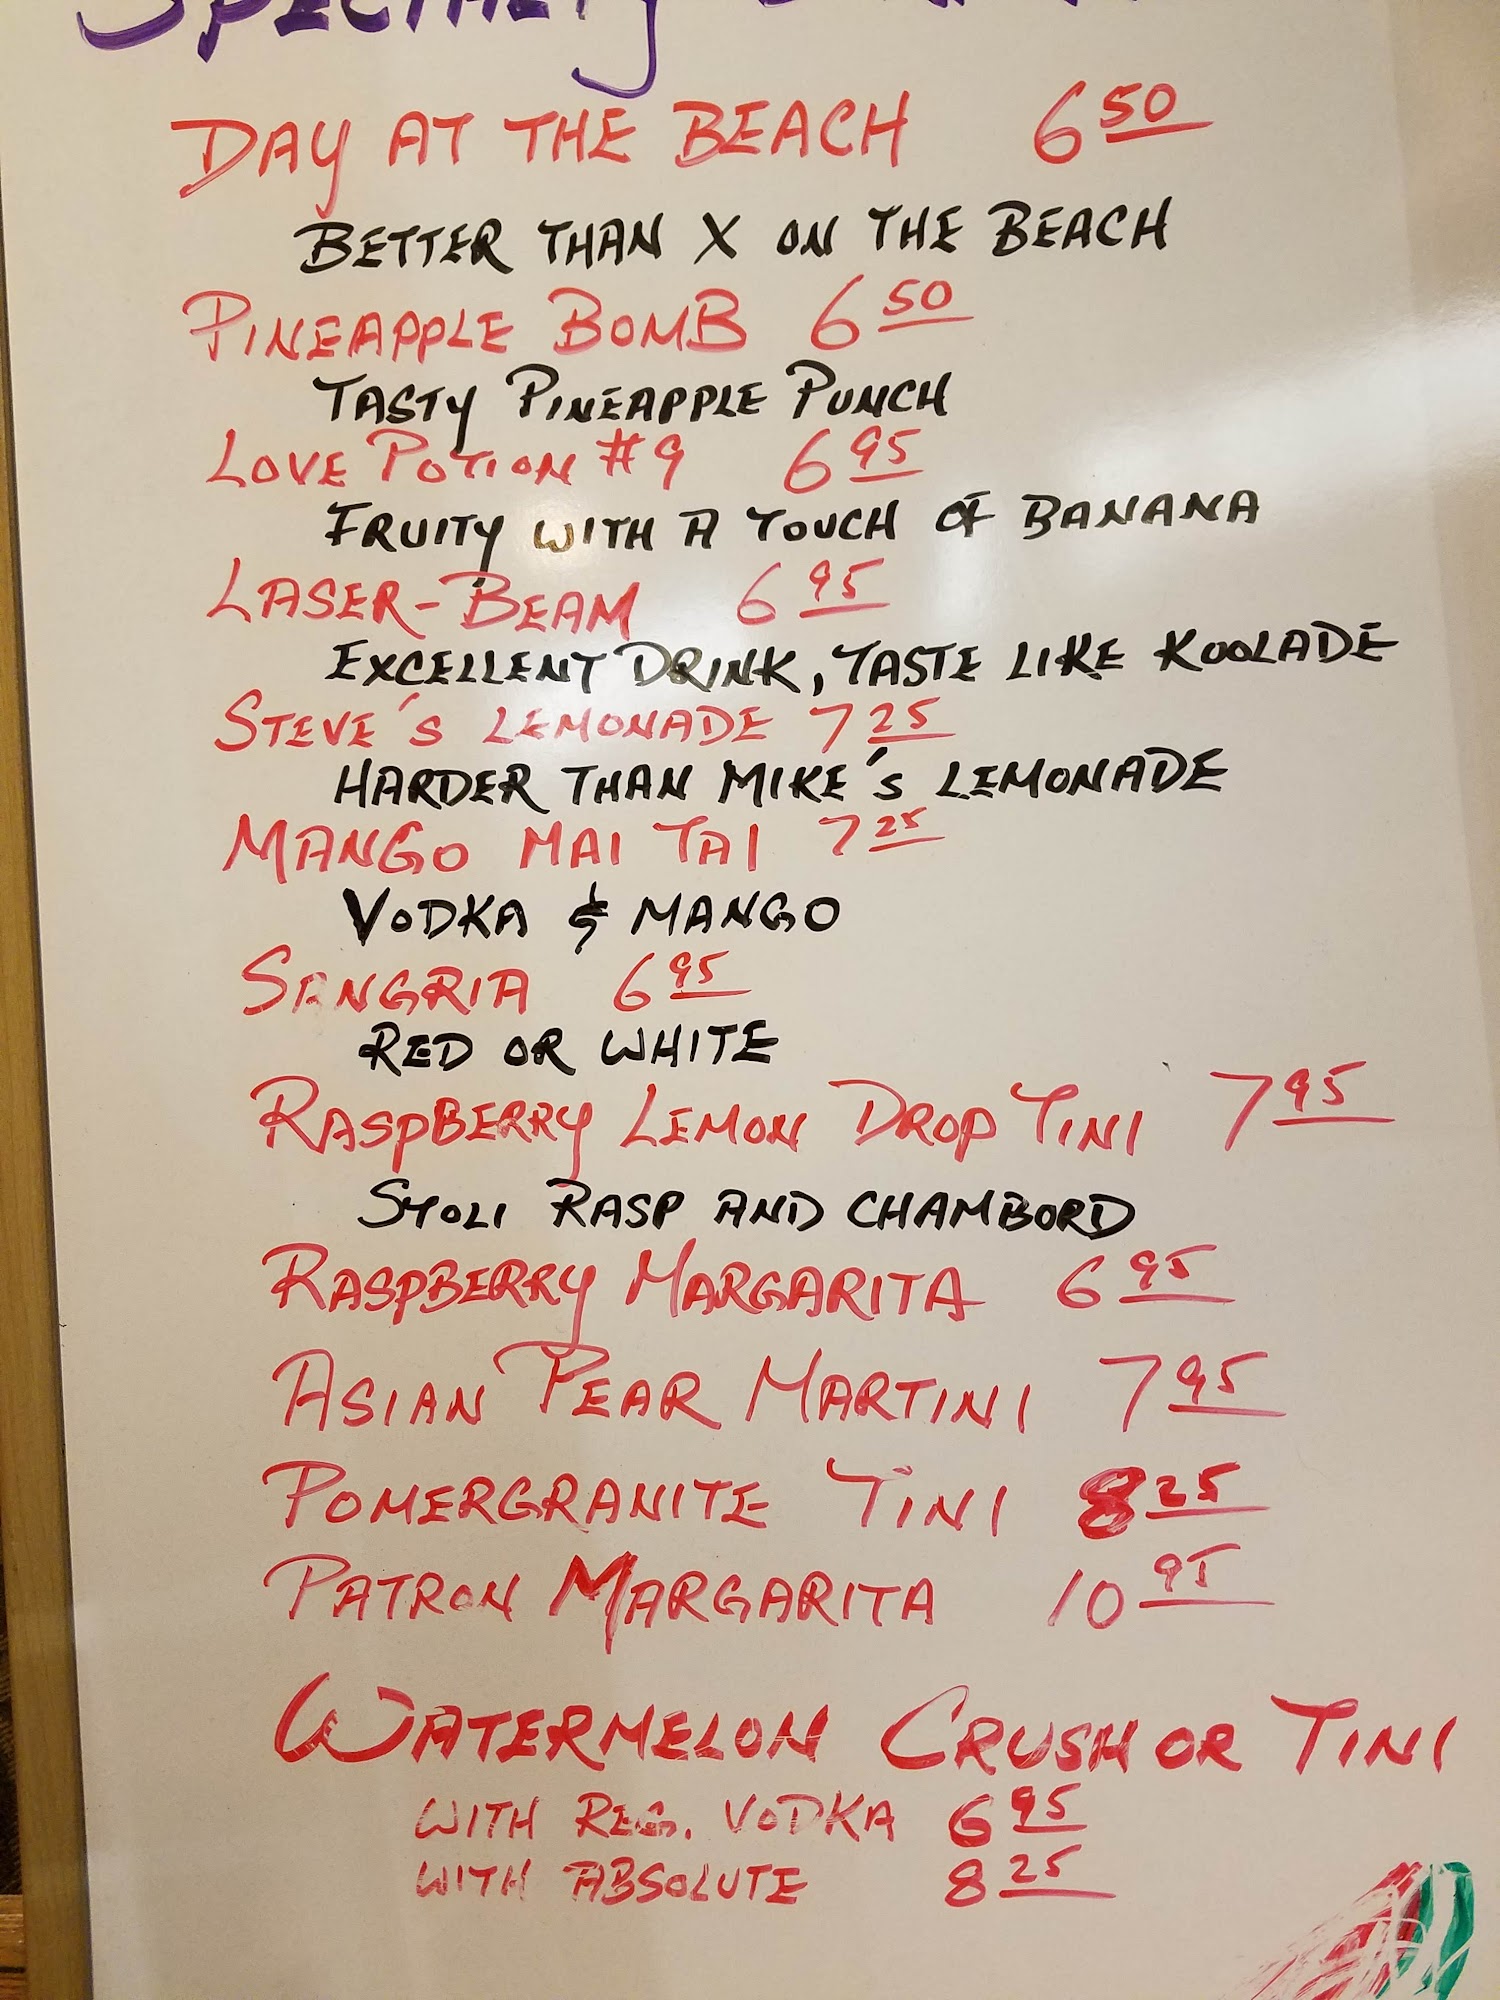 SPECIALTY
DAY AT THE BEACH 6 50
BETTER THAN X ON THE BEACH
PINEAPPLE BOMB 6 50
TASTY PINEAPPLE PUNCH
LOVE POTION #9 6 95
FRUITY WITH A TOUCH OF BANANA
LASER-BEAM 6 95
EXCELLENT DRINK, TASTE LIKE KOOLADE
STEVE'S LEMONADE 7 25
HARDER THAN MIKE'S LEMONADE
MANGO MAI TAI 7 25
VODKA & MANGO
SANGRIA 6 95
RED OR WHITE
RASPBERRY LEMON DROP TINI 7 95
STOLI RASP AND CHAMBORD
RASPBERRY MARGARITA 6 95
ASIAN PEAR MARTINI 7 95
POMERGRANITE TINI 8 25
PATRON MARGARITA 10 95
WATERMELON CRUSH OR TINI
WITH REG. VODKA 6 95
WITH ABSOLUTE 8 25